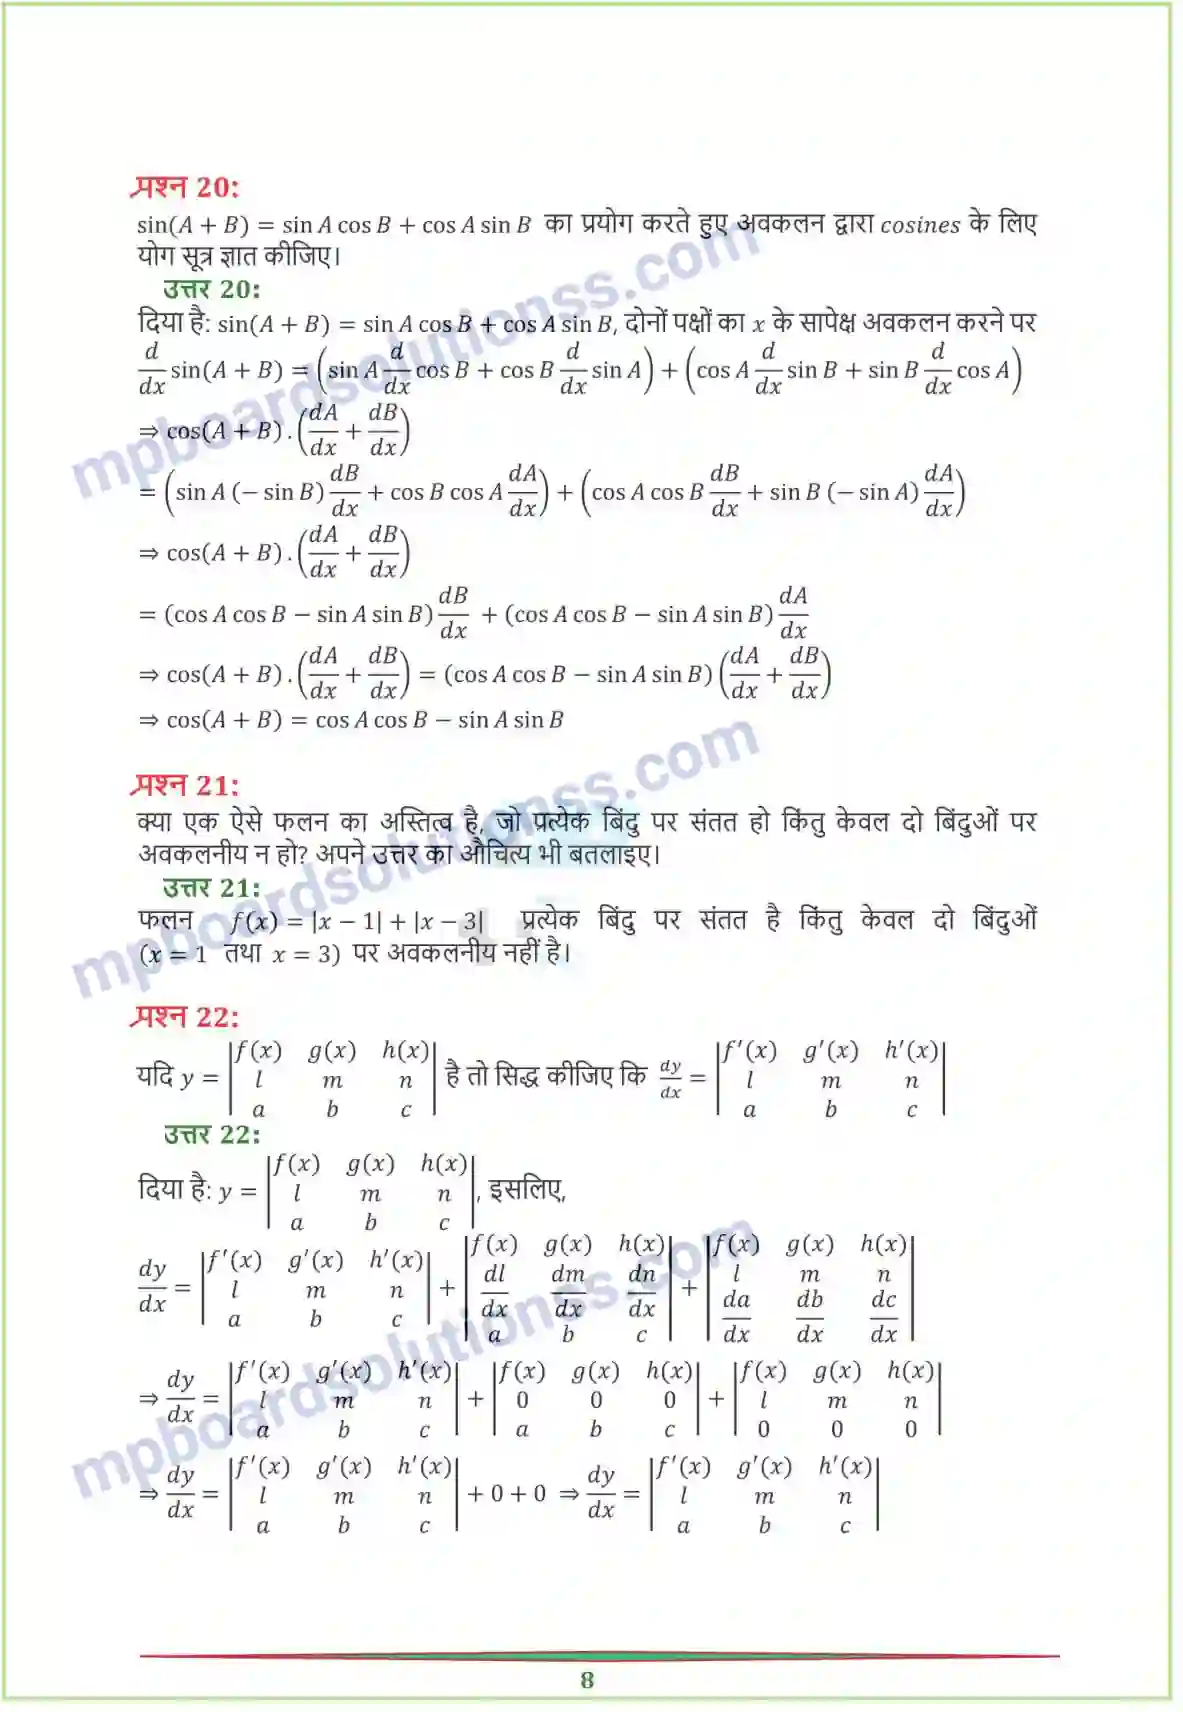 प्रश्न 20:
sin(A + B) = sin A cos B + cos A sin B का प्रयोग करते हुए अवकलन द्वारा cosines के लिए
योग सूत्र ज्ञात कीजिए।
उत्तर 20:
दिया है: sin(A + B) = sin A cos B + cos A sin B, दोनों पक्षों का x के सापेक्ष अवकलन करने पर
d/dx sin(A + B) = (sin A d/dx cos B + cos B d/dx sin A) + (cos A d/dx sin B + sin B d/dx cos A)
⇒ cos(A + B) . (dA/dx + dB/dx)
= (sin A (− sin B) dB/dx + cos B cos A dA/dx) + (cos A cos B dB/dx + sin B (− sin A) dA/dx)
⇒ cos(A + B) . (dA/dx + dB/dx)
= (cos A cos B − sin A sin B) dB/dx + (cos A cos B − sin A sin B) dA/dx
⇒ cos(A + B) . (dA/dx + dB/dx) = (cos A cos B − sin A sin B) (dA/dx + dB/dx)
⇒ cos(A + B) = cos A cos B − sin A sin B
प्रश्न 21:
क्या एक ऐसे फलन का अस्तित्व है, जो प्रत्येक बिंदु पर संतत हो किंतु केवल दो बिंदुओं पर
अवकलनीय न हो? अपने उत्तर का औचित्य भी बतलाइए।
उत्तर 21:
फलन f(x) = |x − 1| + |x − 3| प्रत्येक बिंदु पर संतत है किंतु केवल दो बिंदुओं
(x = 1 तथा x = 3) पर अवकलनीय नहीं है।
प्रश्न 22:
यदि y = |f(x) g(x) h(x); l m n; a b c| है तो सिद्ध कीजिए कि dy/dx = |f′(x) g′(x) h′(x); l m n; a b c|
उत्तर 22:
दिया है: y = |f(x) g(x) h(x); l m n; a b c|, इसलिए,
dy/dx = |f′(x) g′(x) h′(x); l m n; a b c| + |f(x) g(x) h(x); dl/dx dm/dx dn/dx; a b c| + |f(x) g(x) h(x); l m n; da/dx db/dx dc/dx|
⇒ dy/dx = |f′(x) g′(x) h′(x); l m n; a b c| + |f(x) g(x) h(x); 0 0 0; a b c| + |f(x) g(x) h(x); l m n; 0 0 0|
⇒ dy/dx = |f′(x) g′(x) h′(x); l m n; a b c| + 0 + 0 ⇒ dy/dx = |f′(x) g′(x) h′(x); l m n; a b c|
8
mpboardsolutionss.com
mpboardsolutionss.com
mpboardsolutionss.com